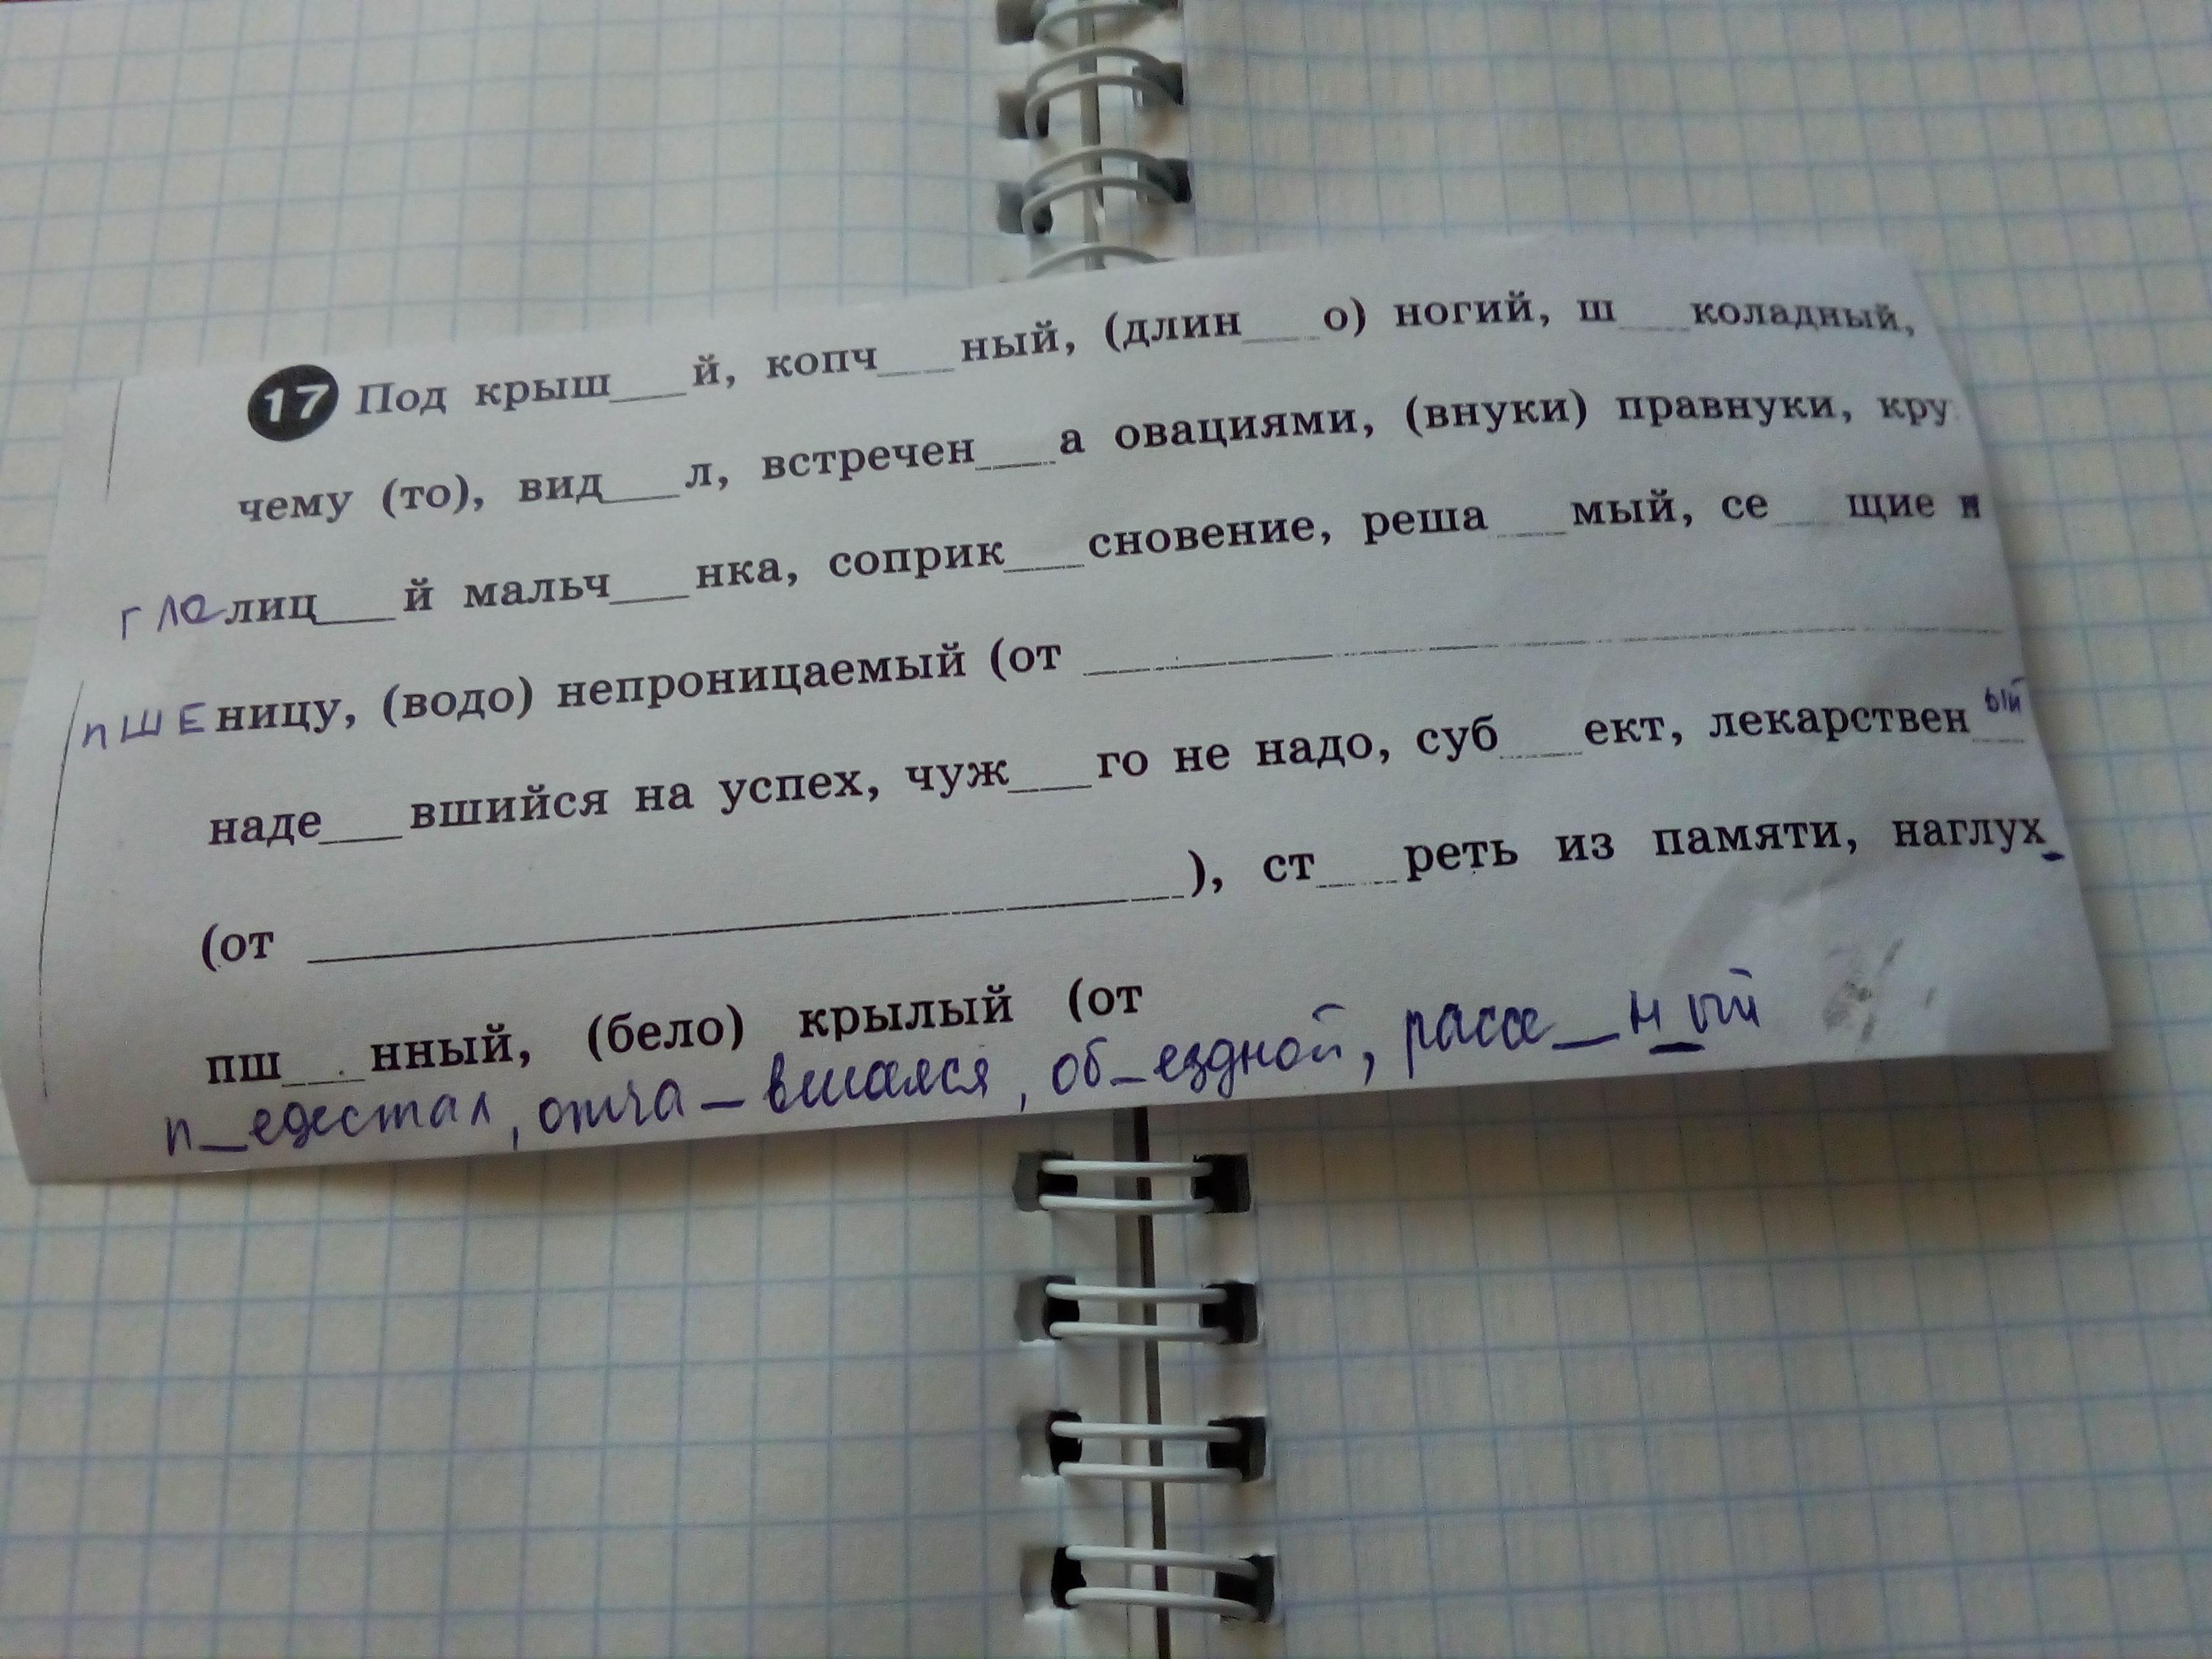 17 Под крыш___й, копч___ный, (длин___о) ногий, ш___коладный,
чему (то), вид___л, встречен___а овациями, (внуки) правнуки, кру
гла лиц___й мальч___нка, соприк___сновение, реша___мый, се___щие п
пшеницу, (водо) непроницаемый (от ___
наде___вшийся на успех, чуж___го не надо, суб___ект, лекарствен___ый
(от ___), ст___реть из памяти, наглух_
пш___нный, (бело) крылый (от
п_едестал, отча_вшаяся, об_ездной, рассе_н_ый